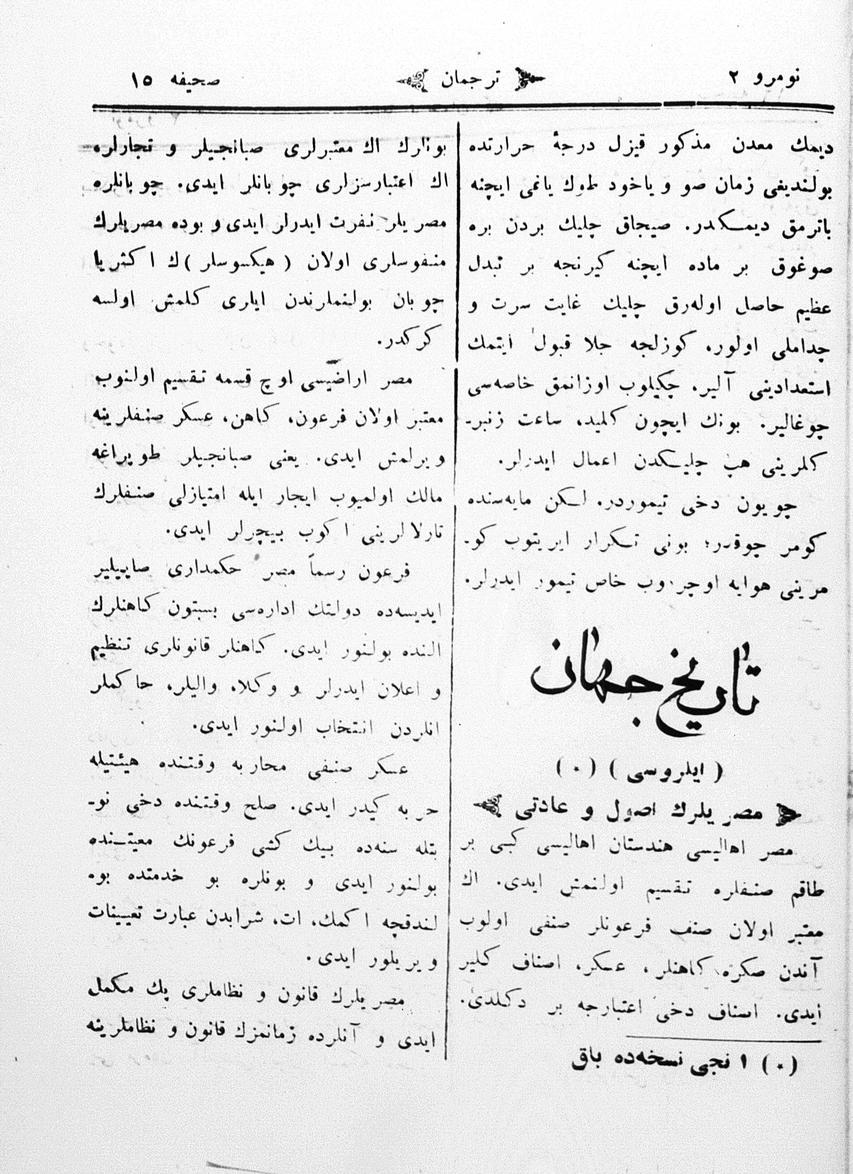 نومرو ٢ ترجمان صحیفه ١٥
دیمك معدن مذكور قیزل درجهٔ حرارتده
بولندیغی زمان صو و یاخود طوك یاغی ایچنه
باترمق دیمكدر. صیجاق چلیك بردن بره
صوغوق بر ماده ایچنه كیرنجه بر تبدل
عظیم حاصل اوله‌رق چلیك غایت سرت و
چداملی اولور، كوزلجه جلا قبول ایتمك
استعدادینی آلیر. چكیلوب اوزانمق خاصه‌سی
چوغالیر. بونك ایچون كلید، ساعت زنبر-
كلرینی هپ چلیكدن اعمال ایدرلر.
چویون دخی تیموردر. لكن مابه‌سنده
كومر چوقدر؛ بونی تكرار ایریتوب كو-
مرینی هوایه اوچروب خاص تیمور ایدرلر.
تاریخ جهان
( ایلروسی ) (٠)
مصریلرك اصول و عادتی
مصر اهالیسی هندستان اهالیسی كبی بر
طاقم صنفلره تقسیم اولنمش ایدی. اك
معتبر اولان صنف فرعونلر صنفی اولوب
آندن صكره كاهنلر، عسكر، اصناف كلیر
ایدی. اصناف دخی اعتبارجه بر دكلدی.
(٠) ١ نجی نسخه‌ده باق
بونلرك اك معتبرلری صبانجیلر و تجارلره
اك اعتبارسزلری چوبانلر ایدی. چوبانلره
مصریلر نفرت ایدرلر ایدی و بوده مصریلرك
منفوسلری اولان ( هیكسوسلر )ك اكثریا
چوبان بولنملرندن ایلری كلمش اولسه
كركدر.
مصر اراضیسی اوچ قسمه تقسیم اولنوب
معتبر اولان فرعون، كاهن، عسكر صنفلرینه
ویرلمش ایدی. یعنی صبانجیلر طوپراغه
مالك اولمیوب ایجار ایله امتیازلی صنفلرك
تارلالرینی اكوب بیچرلر ایدی.
فرعون رسماً مصر حكمداری صاییلیر
ایدیسه‌ده دولتك اداره‌سی بسبتون كاهنلرك
النده بولنور ایدی. كاهنلر قانونلری تنظیم
و اعلان ایدرلر و وكلا، والیلر، حاكملر
انلردن انتخاب اولنور ایدی.
عسكر صنفی محاربه وقتنده هیئتیله
حربه كیدر ایدی. صلح وقتنده دخی نو-
بتله سنه‌ده بیك كشی فرعونك معیتنده
بولنور ایدی و بونلره بو خدمتده بو-
لندقچه اكمك، ات، شرابدن عبارت تعیینات
ویریلور ایدی.
مصریلرك قانون و نظاملری پك مكمل
ایدی و آنلرده زمانمزك قانون و نظاملرینه